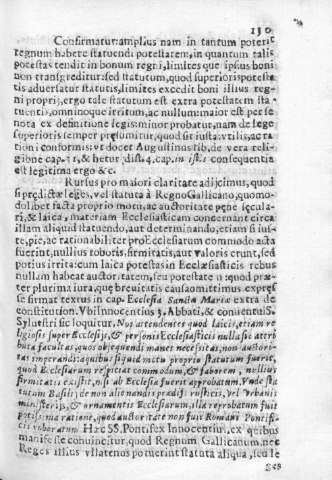 130
Confirmatur: amplius nam in tantum poterit
regnum habere statuendi potestatem, in quantum talis
potestas tendit in bonum regni, limites que ipsius boni
non transgreditur: sed statutum, quod superioris potesta
tis aduersatur statutis, limites excedit boni illius reg-
ni proprij, ergo tale statutum est extra potestatem sta-
tuentis, omninoque irritum, ac nullum: maior est per se
nota ex definitione legis: minor probatur, nam de lege
superioris semper presumitur, quod sit iusta: vtilis, ac ra
tioni conformis: vt docet Augustinus lib. de vera reli-
gione cap. 31, & hetur dist. 4, cap. in istis consequentia
est legitima ergo &c.
Rursus pro maiori claritate adijcimus, quod
si prędictæ leges, vel statuta à Regno Gallicano, quomo-
dolibet facta proprio motu, ac auctoritate pęne sęcula-
ri, & laica, materiam Ecclesiasticam concernant circa
illam aliquid statuendo, aut determinando, etiam si ius-
te, pie, ac rationabiliter pro Ecclesiarum commodo acta
fuerint, nullius roboris, firmitatis, aut valoris erunt, sed
potius irrita: cum laica potestas in Ecclesiasticis rebus
nullam habeat auctoritatem, seu potestatem: quod præ-
ter plurima iura, quę breuitatis causa omittimus expręs
se firmat textus in cap. Ecclesia Sanctæ Mariæ extra de
constitution. Vbi Innocentius 3. Abbati, & conuentui S.
Sylustri sic loquitur, Nos attendentes quod laicis, etiam re
ligiosis super Ecclesijs, & personis Ecclesiasticis nulla sit attri
buta facultas, quos obsequendi manet necessitas, non auctori-
tas imperandi: aquibus siquid motu proprio statutum fuerit,
quod Ecclesiarum respiciat commodum, & fauorem, nullius
firmitatis existit, nisi ab Ecclesia fuerit approbatum. Vnde sta
tutum Basilij de non alienandis prædijs rusticis, vel vrbanis
ministerijs, & ornamentis Ecclesiarum, illa reprobatum fuit
potissima ratione, quod auctoritate non fuit Romani Pontifi-
cis roboratum Hæc SS. Pontifex Innocentius, ex quibus
manifeste conuincitur, quod Regnum Gallicanum, nec
Reges illius vllatenus potuerint statuta aliqua, seu le
ges